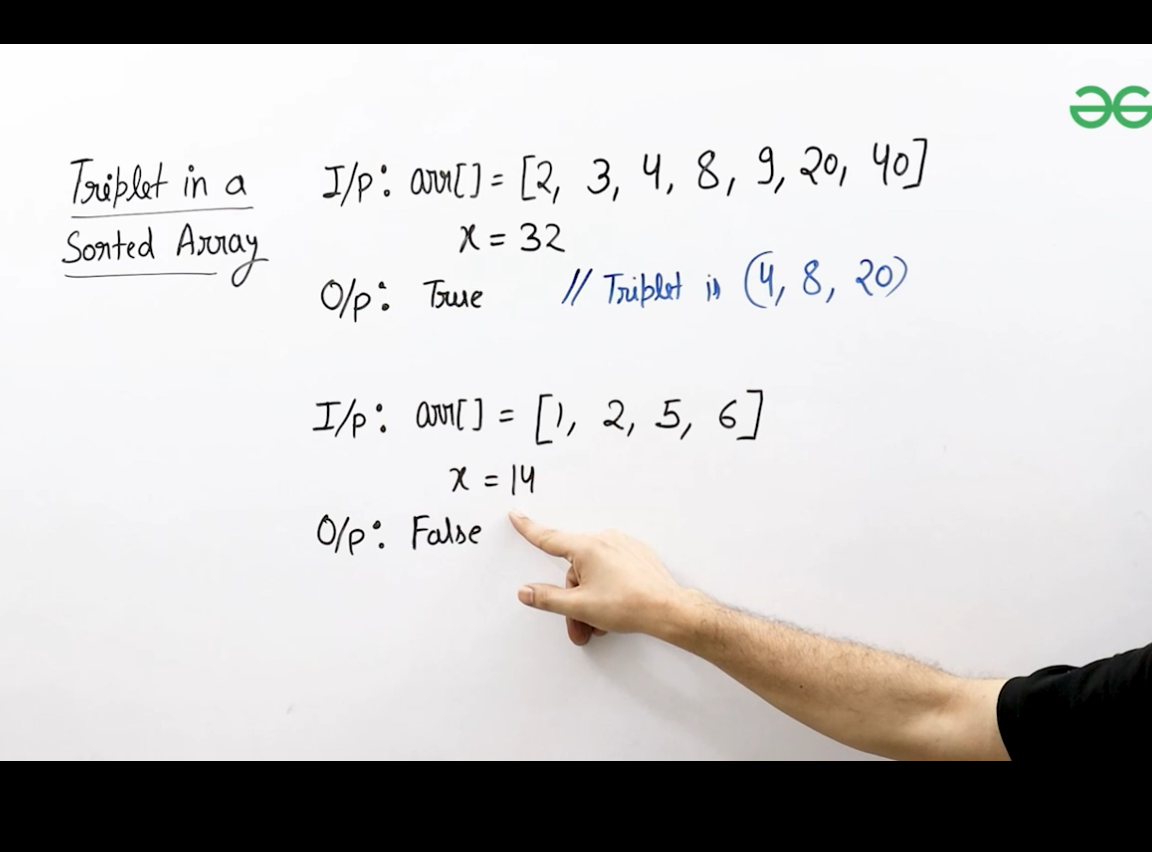 Triplet in a
Sorted Array
I/p: arr[] = [2, 3, 4, 8, 9, 20, 40]
x = 32
O/p: True // Triplet is (4, 8, 20)
I/p: arr[] = [1, 2, 5, 6]
x = 14
O/p: False